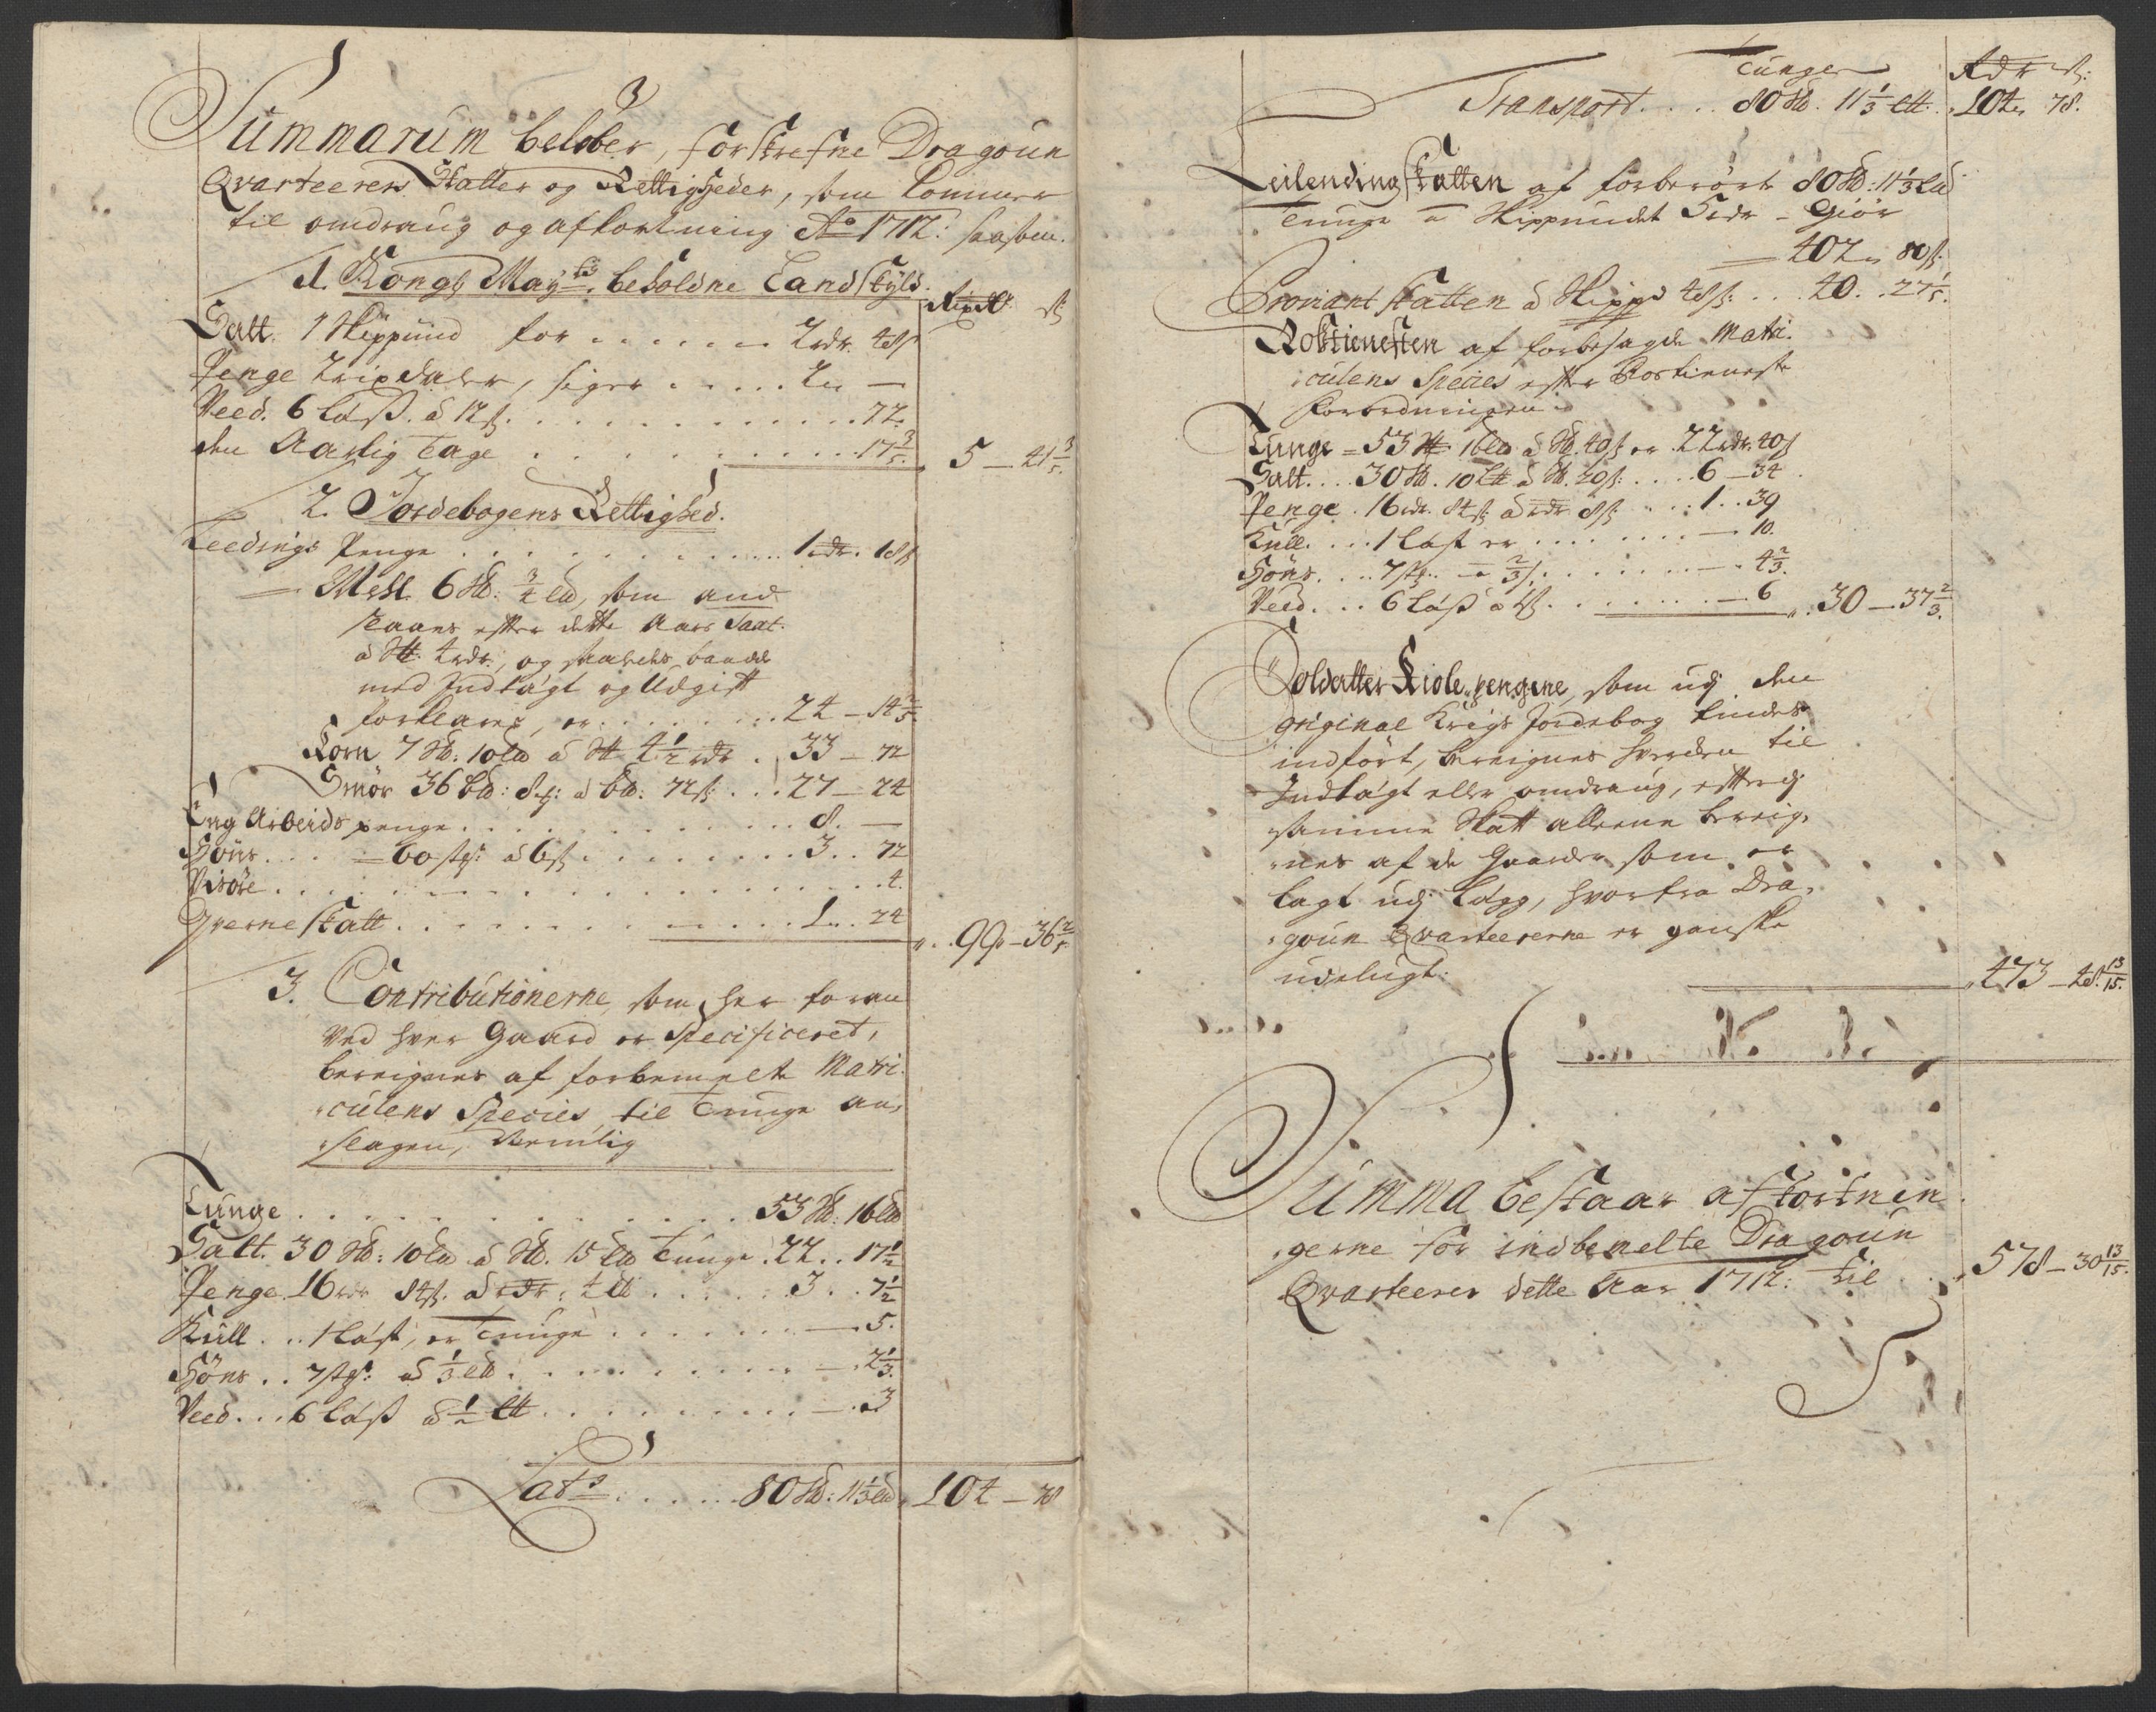 Summarum beløber, forskrefne Dragoun
Qvarteerers Skatter og Rettigheder, som kommer
til omdraug og afkortning Ao 1712: saasom.
1. Kongl May:ts beholdne Landskyld.
Rixdlr ß
Salt. 1 Skippund for . . . . . 2 rdr. 48 ß
Penge 2 rixdaler, siger . . . . . 2 „ —
Veed. 6 Læss. à 12 ß. . . . . . 72.
den Aarlig Tage . . . . . 17 3/5. 5 — 41 3/5
2. Jordebogens Rettighed.
Leedings Penge . . . . . 1 rdr. 18 ß
— Meel 6 Skd: 3/4 Ld, som and
staaer efter dette Aars Taxt.
à Skd 4 rdr, og saaledes baade
med Indtägt og Udgift
forklares, er . . . . . 24 — 14 2/5.
Korn 7 Skd: 10 Ld à Skd 4 1/2 rdr . 33 — 72
Smør 36 Ld: 8 : à Ld: 72 ß: . . . 27 — 24
Eng Arbeids penge . . . . . 8. —
Høns . . . — 60 stk: à 6 ß . . . . . 3 . . 72
Visøre . . . . . 4.
Qverne skatt . . . . . 1 . . 24
99 — 36 2/5
3. Contributionerne, som her foran
ved hver Gaard er Specificeret,
bereignes af forbemelte Matri-
culens Species, til Tunge an-
slagen, Nemlig
Tunge . . . . . 53 Skd: 16 Ld
Salt. 30 Skd: 10 Ld à Skd. 15 Ld Tunge . 22 . . 17 1/2
Penge. 16 rdr 84 ß. à rdr: 4 Ld . . . . . 3 . . 7 1/2
Kull . . . 1 Läst, er Tunge . . . . . — 5.
Høns . . 7 stk: à 1/3 Ld . . . . . — 2 1/3.
Veed . . . 6 Läss à 1/2 Ld . . . . . — 3
Lat:s . . . . . 80 Skd: 11 1/3 Ld. 104 — 78
Tunge Rdr ß:
Transport . . . . 80 Skd. 11 1/3 Ld. 104 „ 78.
Leilendingskatten af forberørte 80 Skd: 11 1/3 Ld
Tunge à Skippundet 5 rdr — Giør
— 402 „ 80 ß.
Proviantskatten à Skippd 48 ß: . . . 40 . . 27 1/5.
Rostienesten af forbesagde Matri-
culens Species efter Rostieneste
forordningen
Tunge — 53 Skd 16 Ld à Skd. 40 ß er . 22 rdr. 40 ß
Salt . . . . 30 Skd. 10 Ld à Skd. 20 ß: . . . . 6 — 34
Penge . 16 rdr. 84 ß à rdr 8 ß . . . . 1 . . 39
Kull. . . . 1 Läst er . . . . . — 10.
Høns. . . . 7 stk: — à 2/3 ß. . . . . . — . 4 2/3.
Veed . . . 6 Läss à 1 ß. . . . . . — 6 30 — 37 2/3.
Soldatter Kiole pengene, som udj den
original Krigs Jordebog findes
indført, bereignes hverken til
Indtägt eller omdraug, efterdj
samme Skatt alleene bereig-
nes af de Gaarder som er
lagt udj Lägg, hvorfra Dra-
goun Qvarteererne er ganske
udelugt:
473 — 48 13/15.
Summa bestaar afkortnin-
gerne for indbemelte Dragoun
Qvarteerer dette Aar 1712: til . . 578 — 30 13/15.